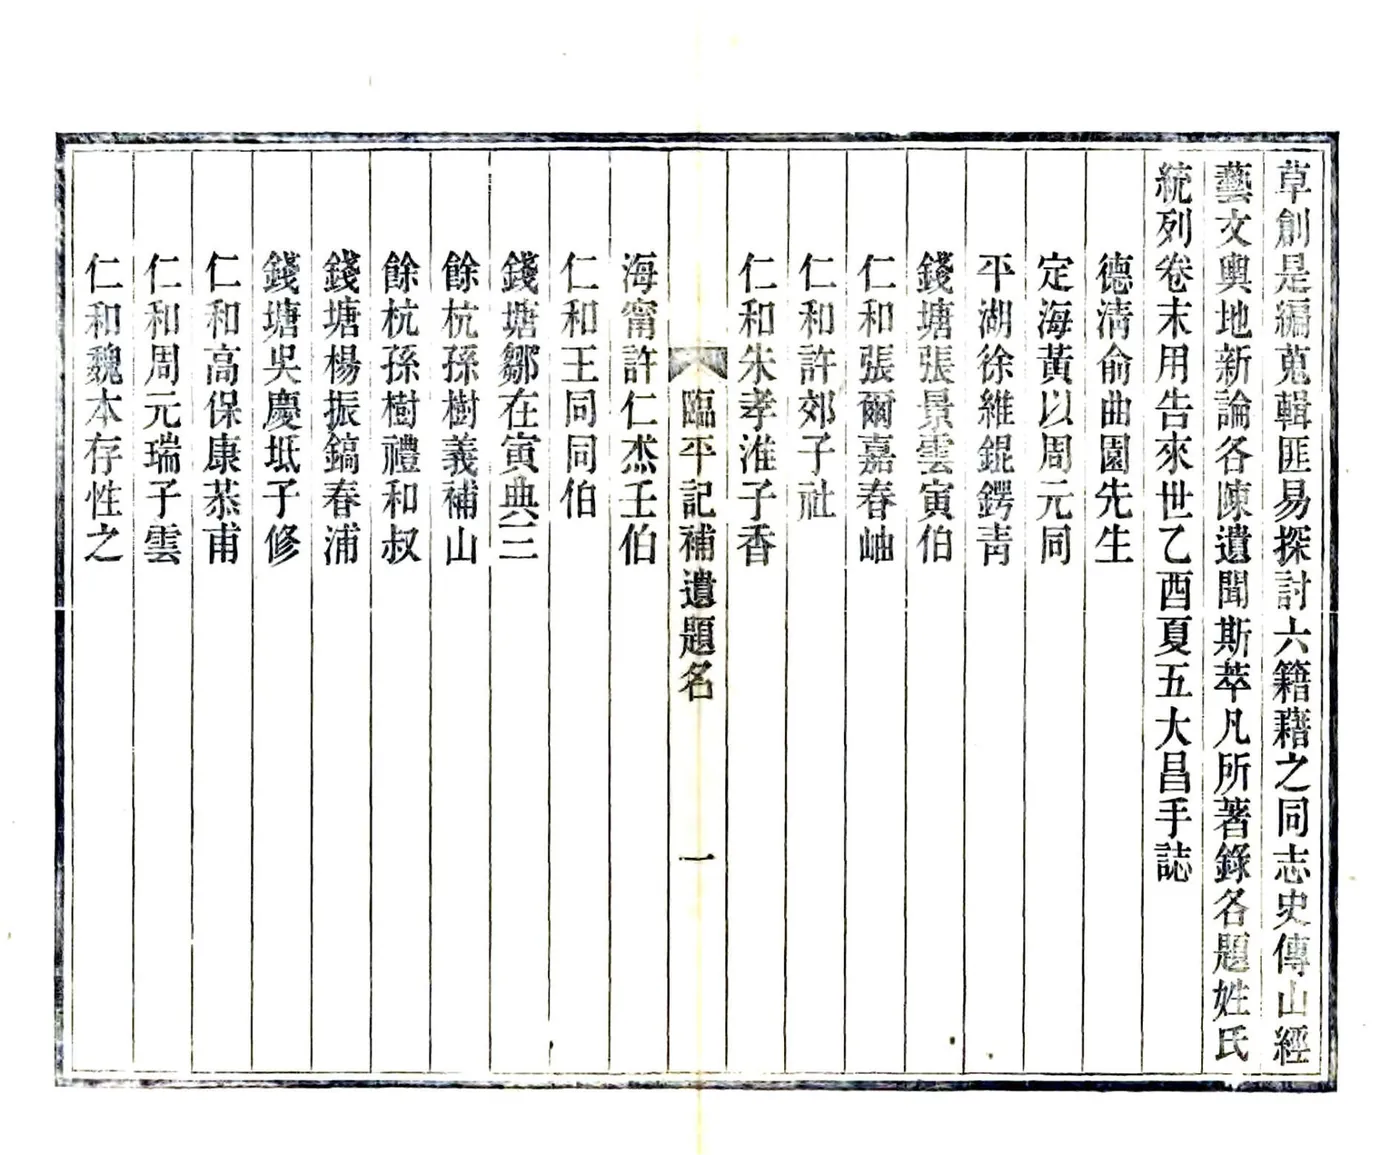 草創是編蒐輯匪易探討六籍藉之同志史傳山經
藝文輿地新論各陳遺聞斯萃凡所著錄各題姓氏
統列卷末用告來世乙酉夏五大昌手誌
德清俞曲園先生
定海黃以周元同
平湖徐維錕鍔青
錢塘張景雲寅伯
仁和張爾嘉春岫
仁和許郊子社
仁和朱孝淮子香
臨平記補遺題名
一
海甯許仁杰壬伯
仁和王同同伯
錢塘鄒在寅典三
餘杭孫樹義補山
餘杭孫樹禮和叔
錢塘楊振鎬春浦
錢塘吳慶坻子修
仁和高保康㳟甫
仁和周元瑞子雲
仁和魏本存性之